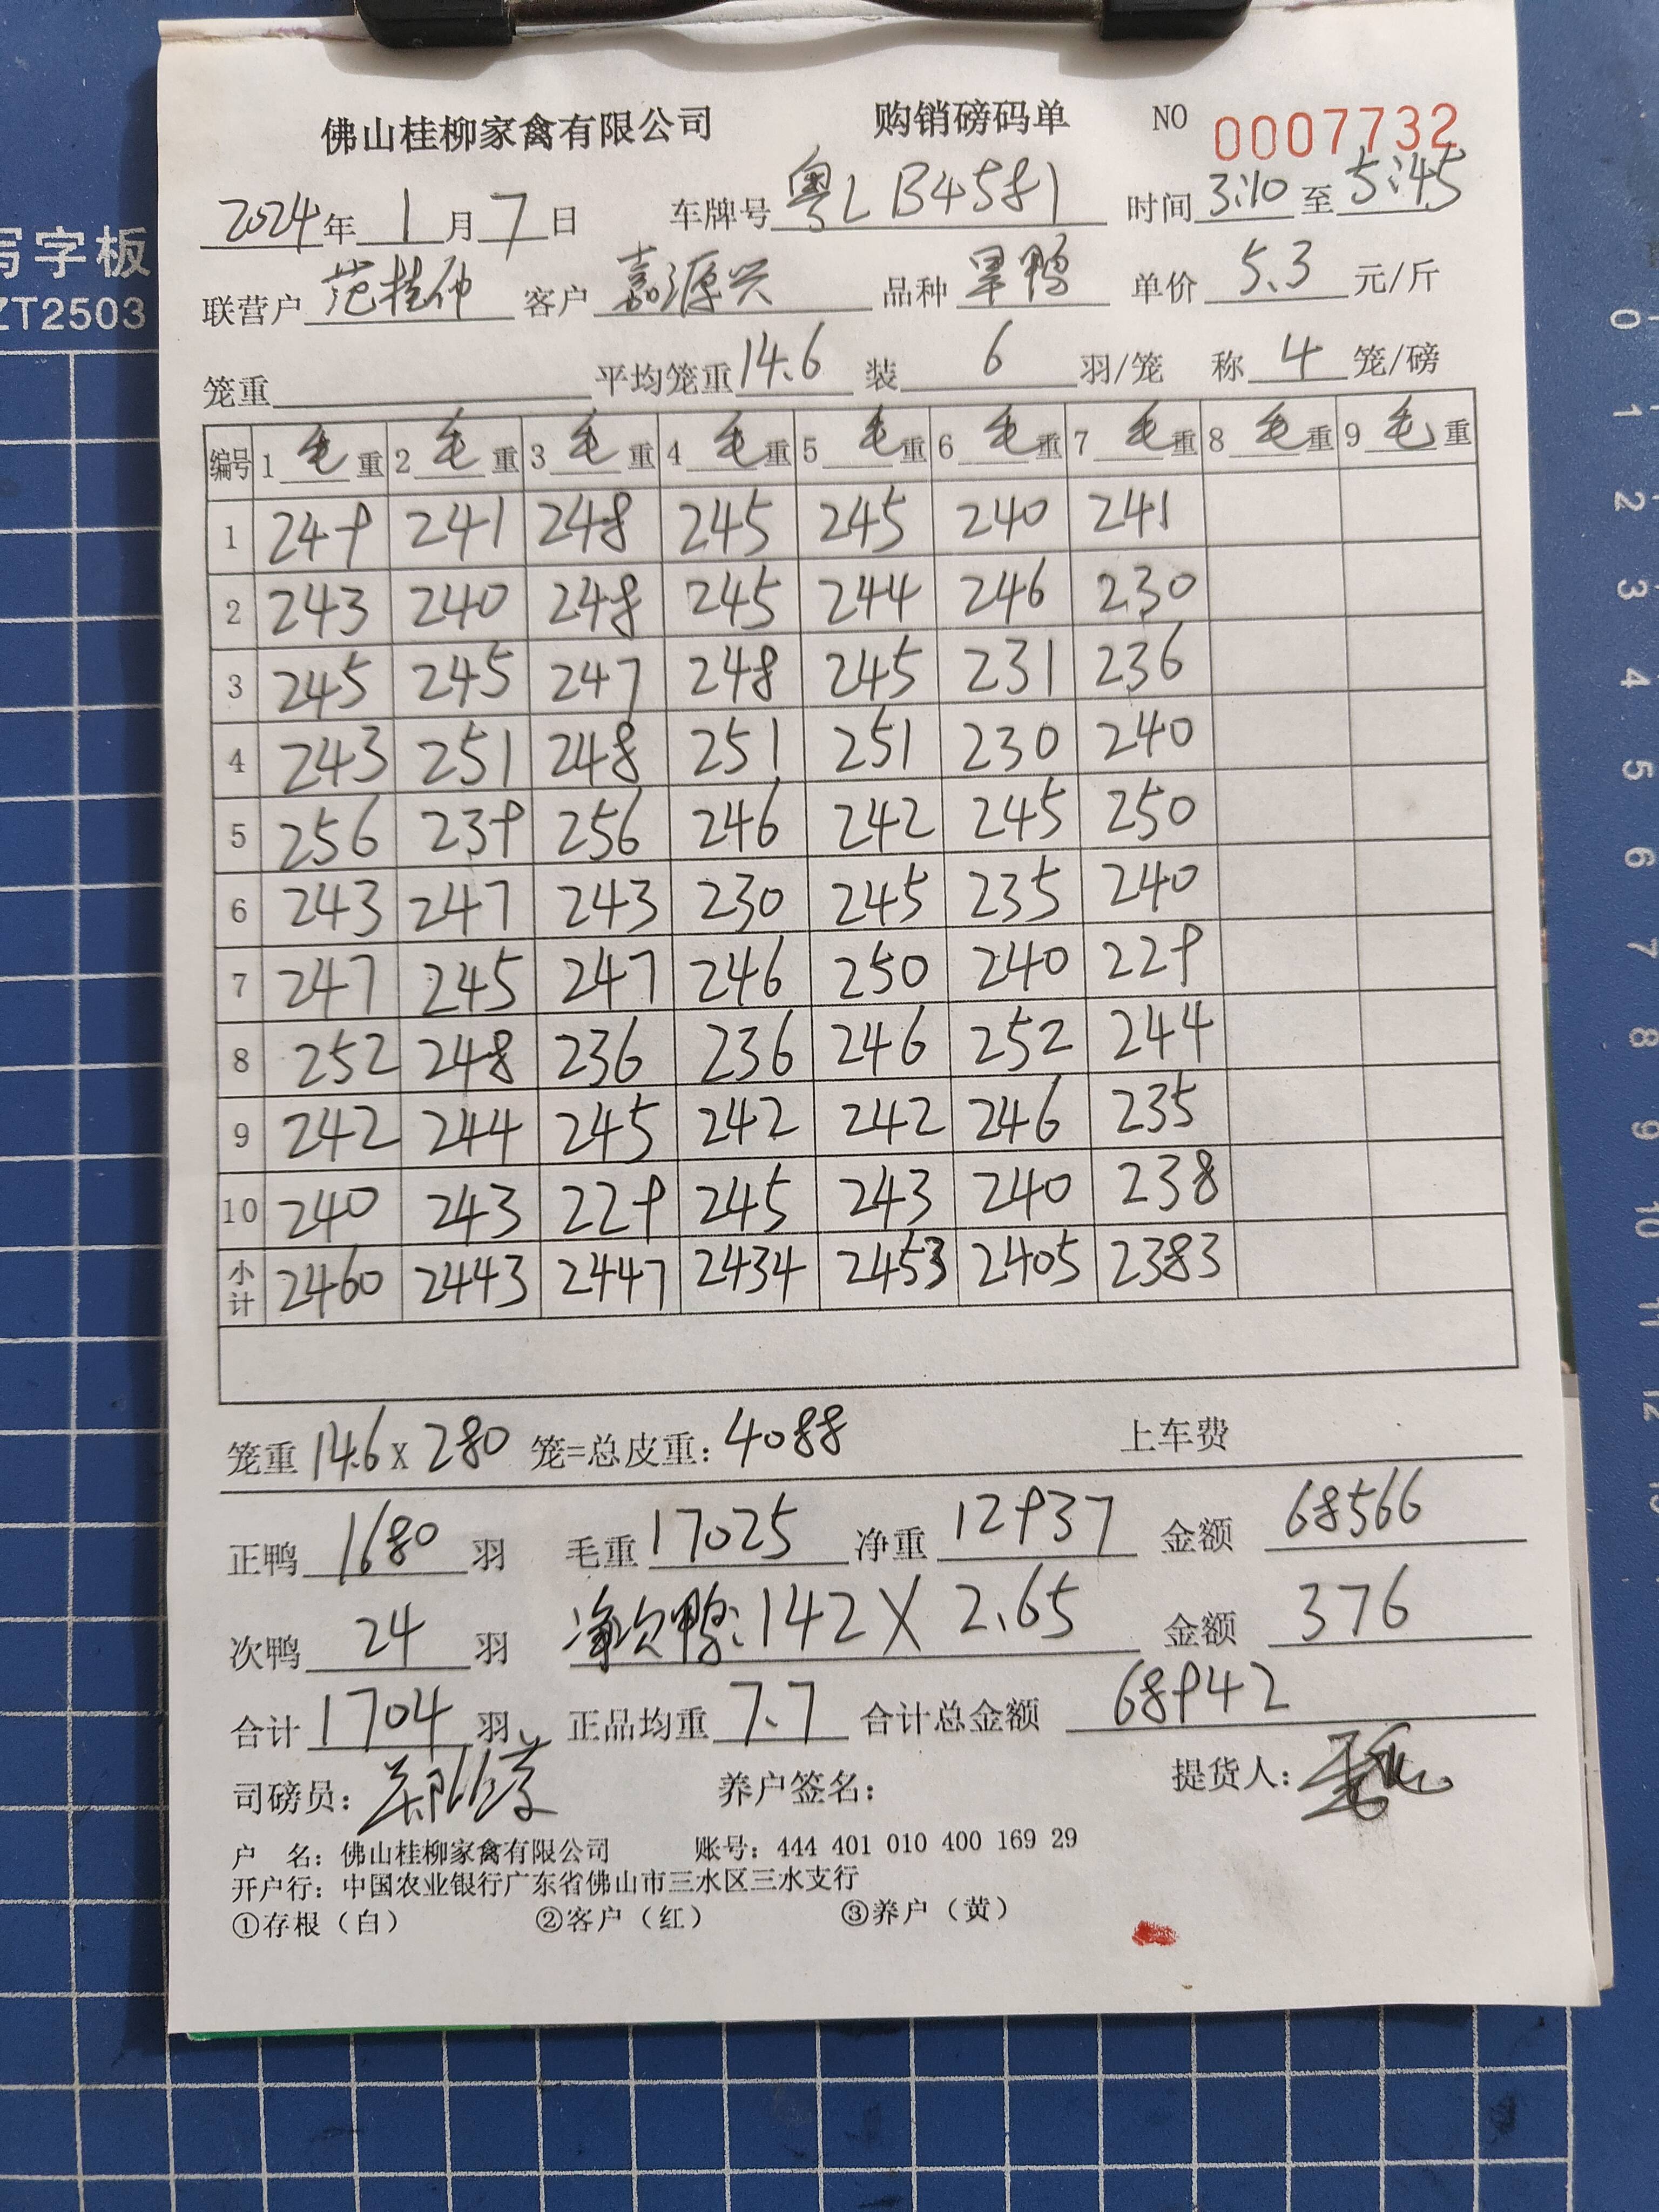 佛山桂柳家禽有限公司 购销磅码单 NO 0007732
2024年 1月 7日 车牌号 粤L B4581 时间 3:10 至 5:45
联营户 范桂 客户 嘉源兴 品种 旱鸭 单价 5.3 元/斤
笼重 平均笼重 14.6 装 6 羽/笼 称 4 笼/磅
编号 1 毛重 2 毛重 3 毛重 4 毛重 5 毛重 6 毛重 7 毛重 8 毛重 9 毛重
1 249 241 248 245 245 240 241
2 243 240 248 245 244 246 230
3 245 245 247 248 245 231 236
4 243 251 248 251 251 230 240
5 256 239 256 246 242 245 250
6 243 247 243 230 245 235 240
7 247 245 247 246 250 240 229
8 252 248 236 236 246 252 244
9 242 244 245 242 242 246 235
10 240 243 229 245 243 240 238
小计 2460 2443 2447 2434 2453 2405 2383
笼重 14.6 x 280 笼=总皮重：4088 上车费
正鸭 1680 羽 毛重 17025 净重 12937 金额 68566
次鸭 24 羽 净次鸭：142 X 2.65 金额 376
合计 1704 羽 正品均重 7.7 合计总金额 68942
司磅员： 养户签名： 提货人：
户 名：佛山桂柳家禽有限公司 账号：444 401 010 400 169 29
开户行：中国农业银行广东省佛山市三水区三水支行
①存根（白） ②客户（红） ③养户（黄）
写字板
ZT2503
0
1
2
3
4
5
6
7
8
9
10
11
12
13